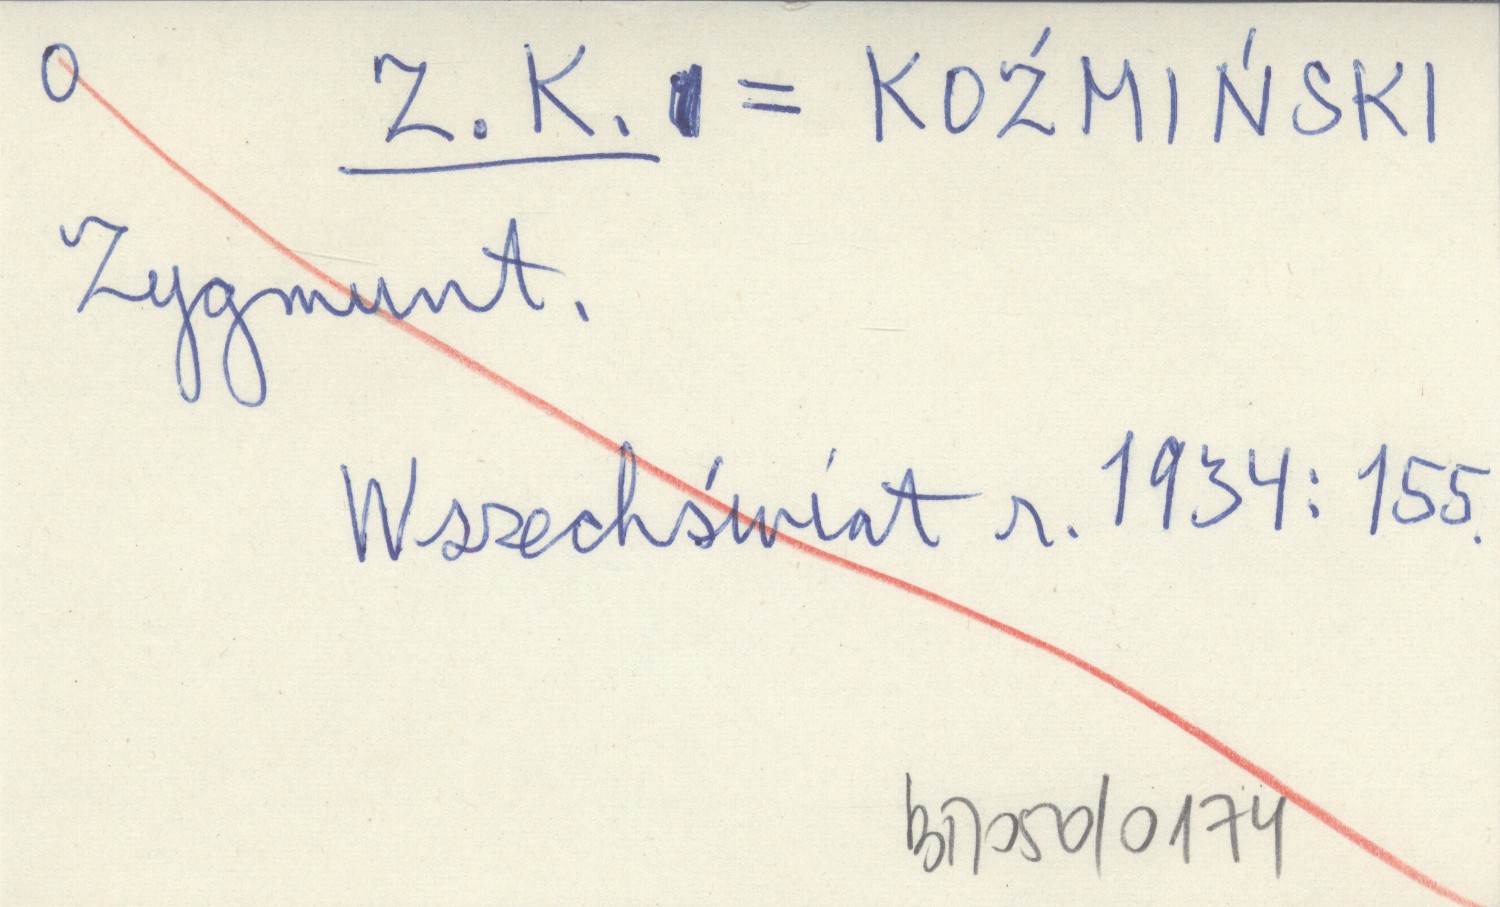 O Z. K. = KOŹMIŃSKI
Zygmunt.
Wszechświat r. 1934: 155.
bn050/0174